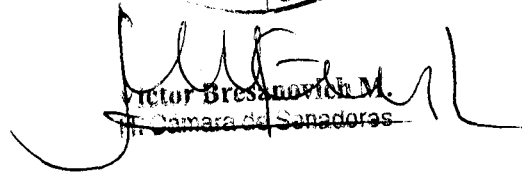 Victor Bresanovich M.
H. Cámara de Senadores